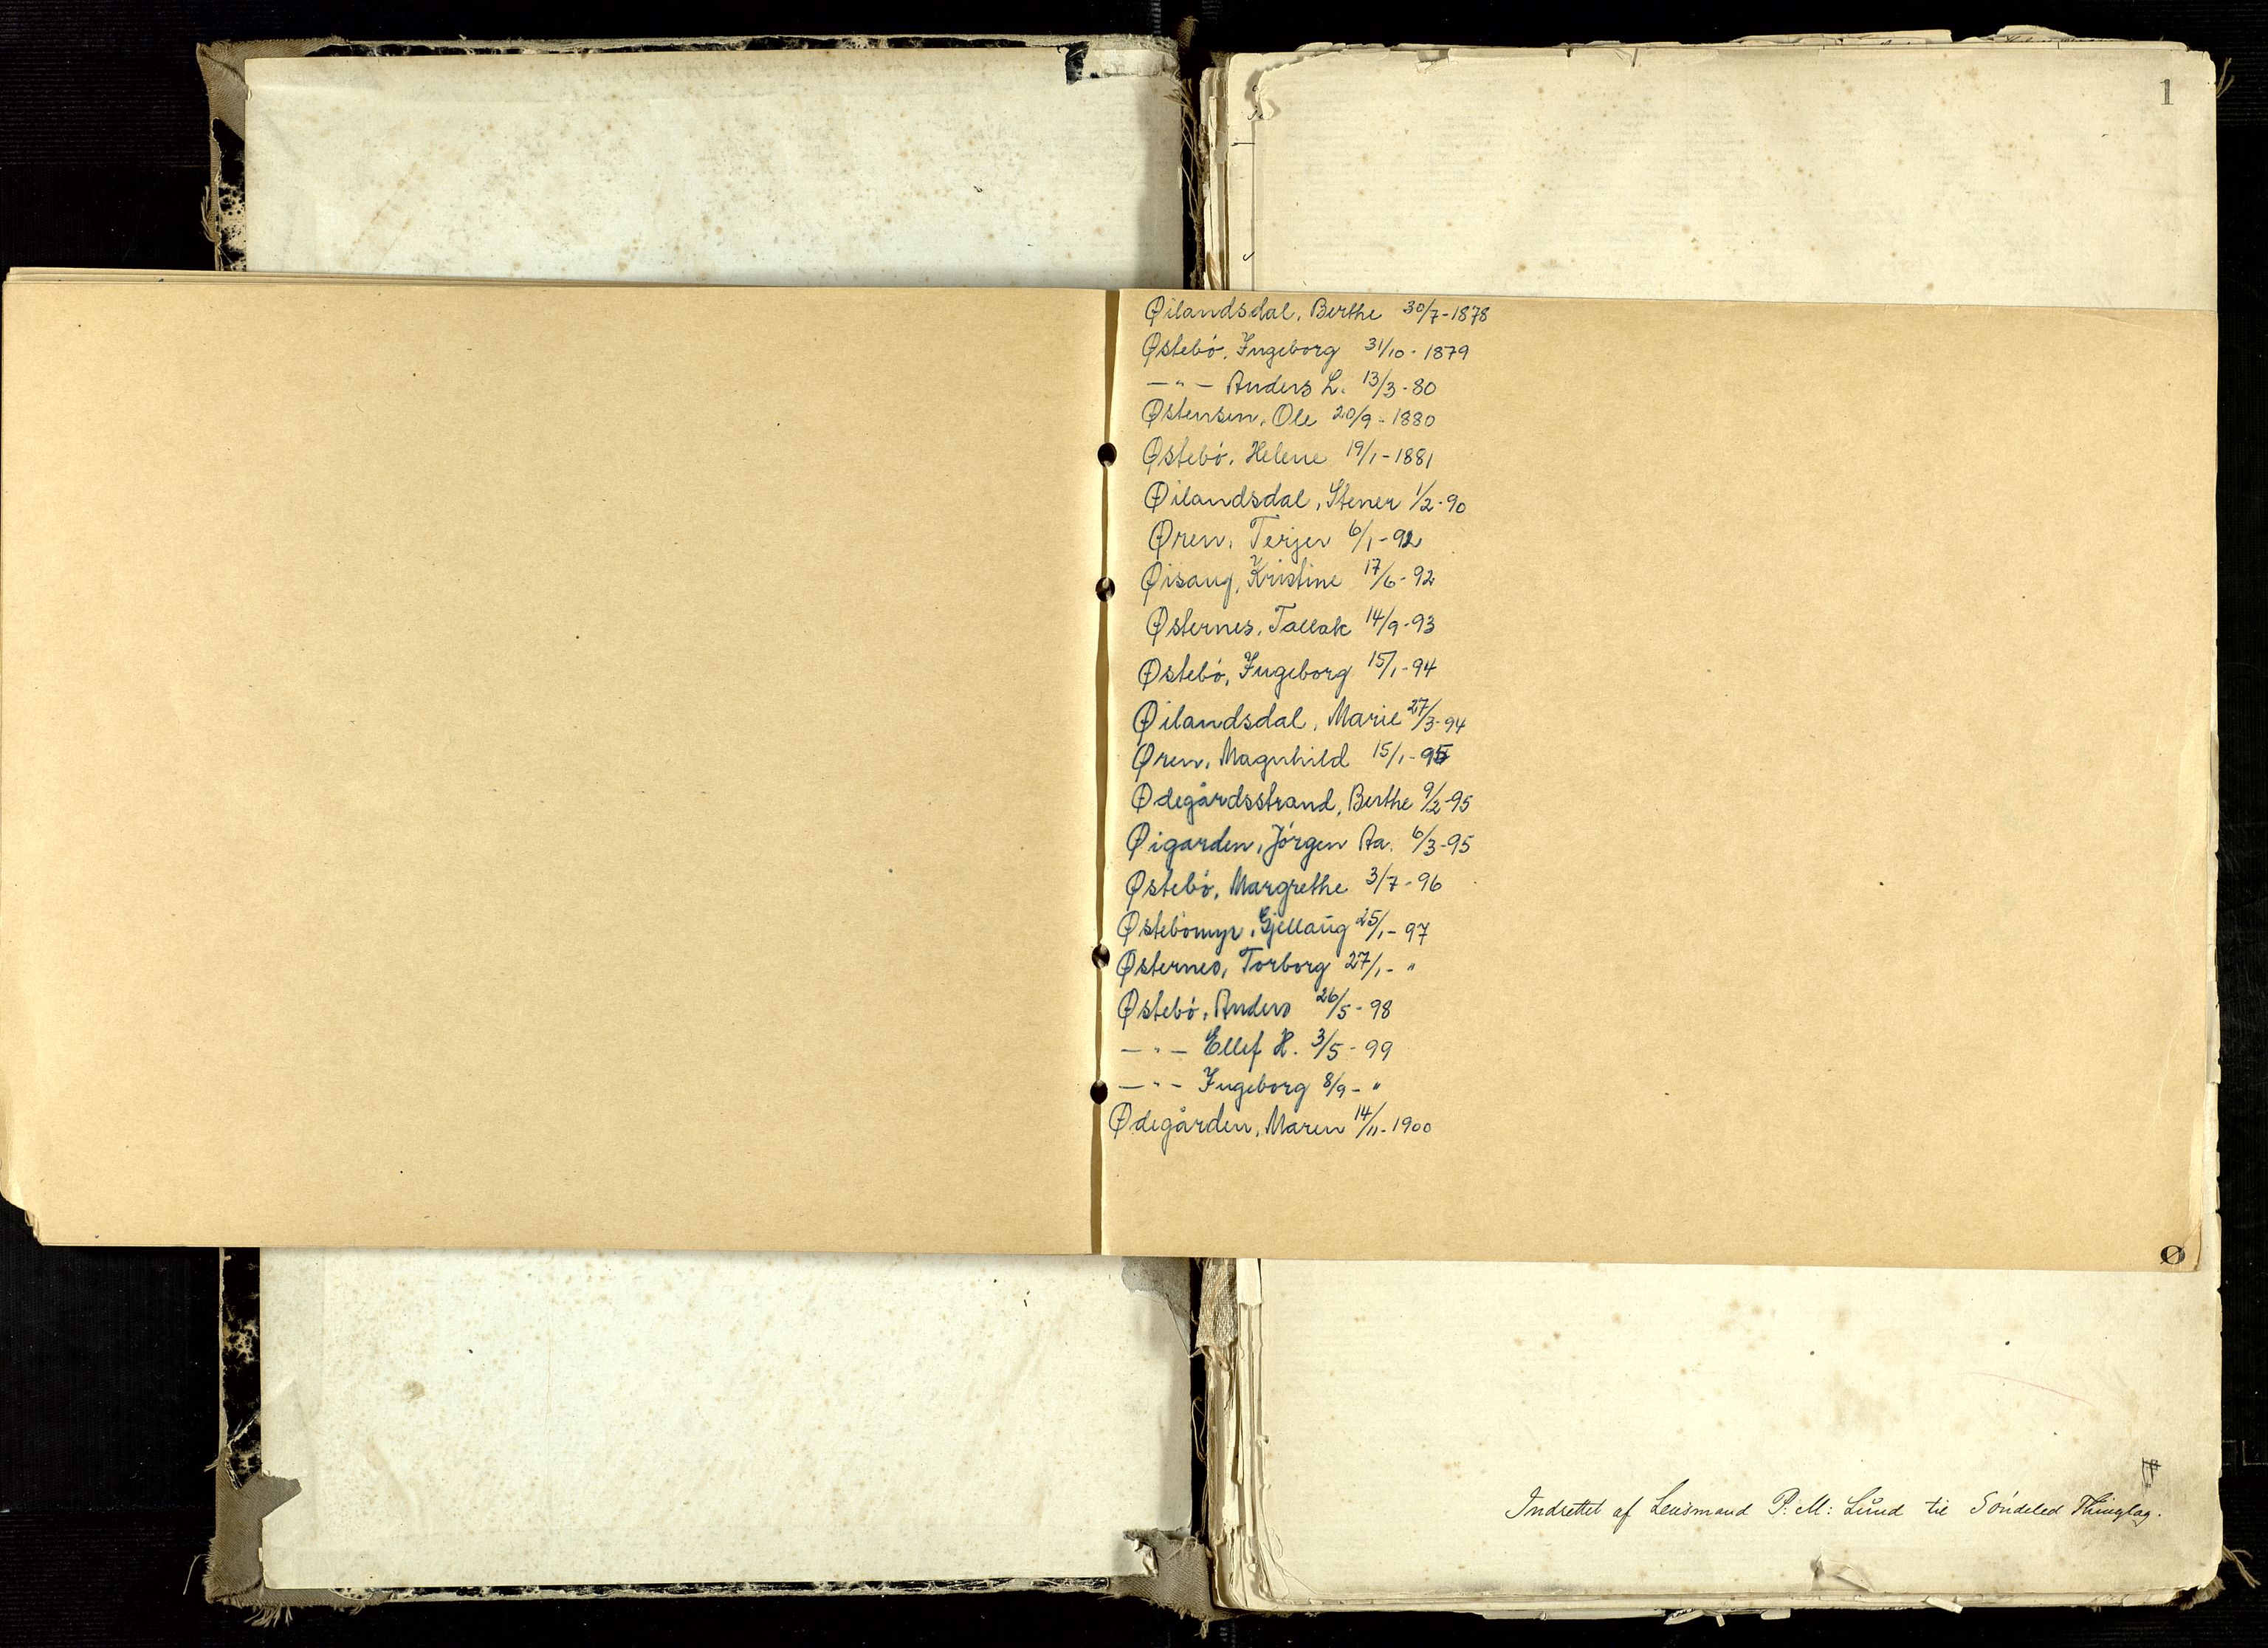 1
Øilandsdal, Berthe 30/7-1878
Østebö, Ingeborg 31/10-1879
—"— Anders L. 13/3-80
Østensen, Ole 20/9-1880
Østebö, Helene 19/1-1881
Øilandsdal, Stener 1/2-90
Øren, Terjer 6/1-92
Øisang, Kristine 17/6-92
Østernes, Tallak 14/9-93
Østebö, Ingeborg 15/1-94
Øilandsdal, Marie 27/3-94
Øren, Magnhild 15/1-95
Ødegårdsstrand, Berthe 9/2-95
Øigarden, Jörgen Aa. 6/3-95
Østebö, Margrethe 3/7-96
Østebömyr, Gjellaug 25/1-97
Østernes, Torborg 27/1-"
Østebö, Anders 26/5-98
—"— Ellef H. 3/5-99
—"— Ingeborg 8/9-"
Ødegården, Maren 14/11-1900
Ø
Indrettet af Lensmand P: M: Lund til Söndeled Thinglag.